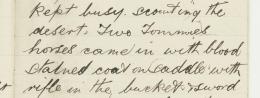 kept busy. scouting the
desert. Two Tommies
horses came in with blood
stained coat on saddle with
rifle in the bucket & sword